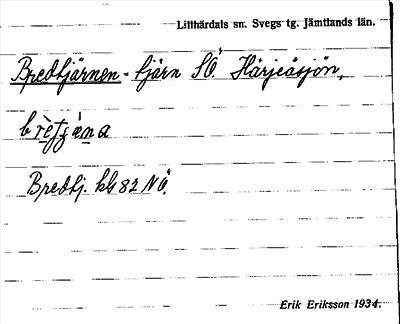 Lillhärdals sn. Svegs tg. Jämtlands län.
Bredtjärnen - tjärn SÖ. Härjeåsjön,
Bredtj. kbl 82 NÖ.
Erik Eriksson 1934.